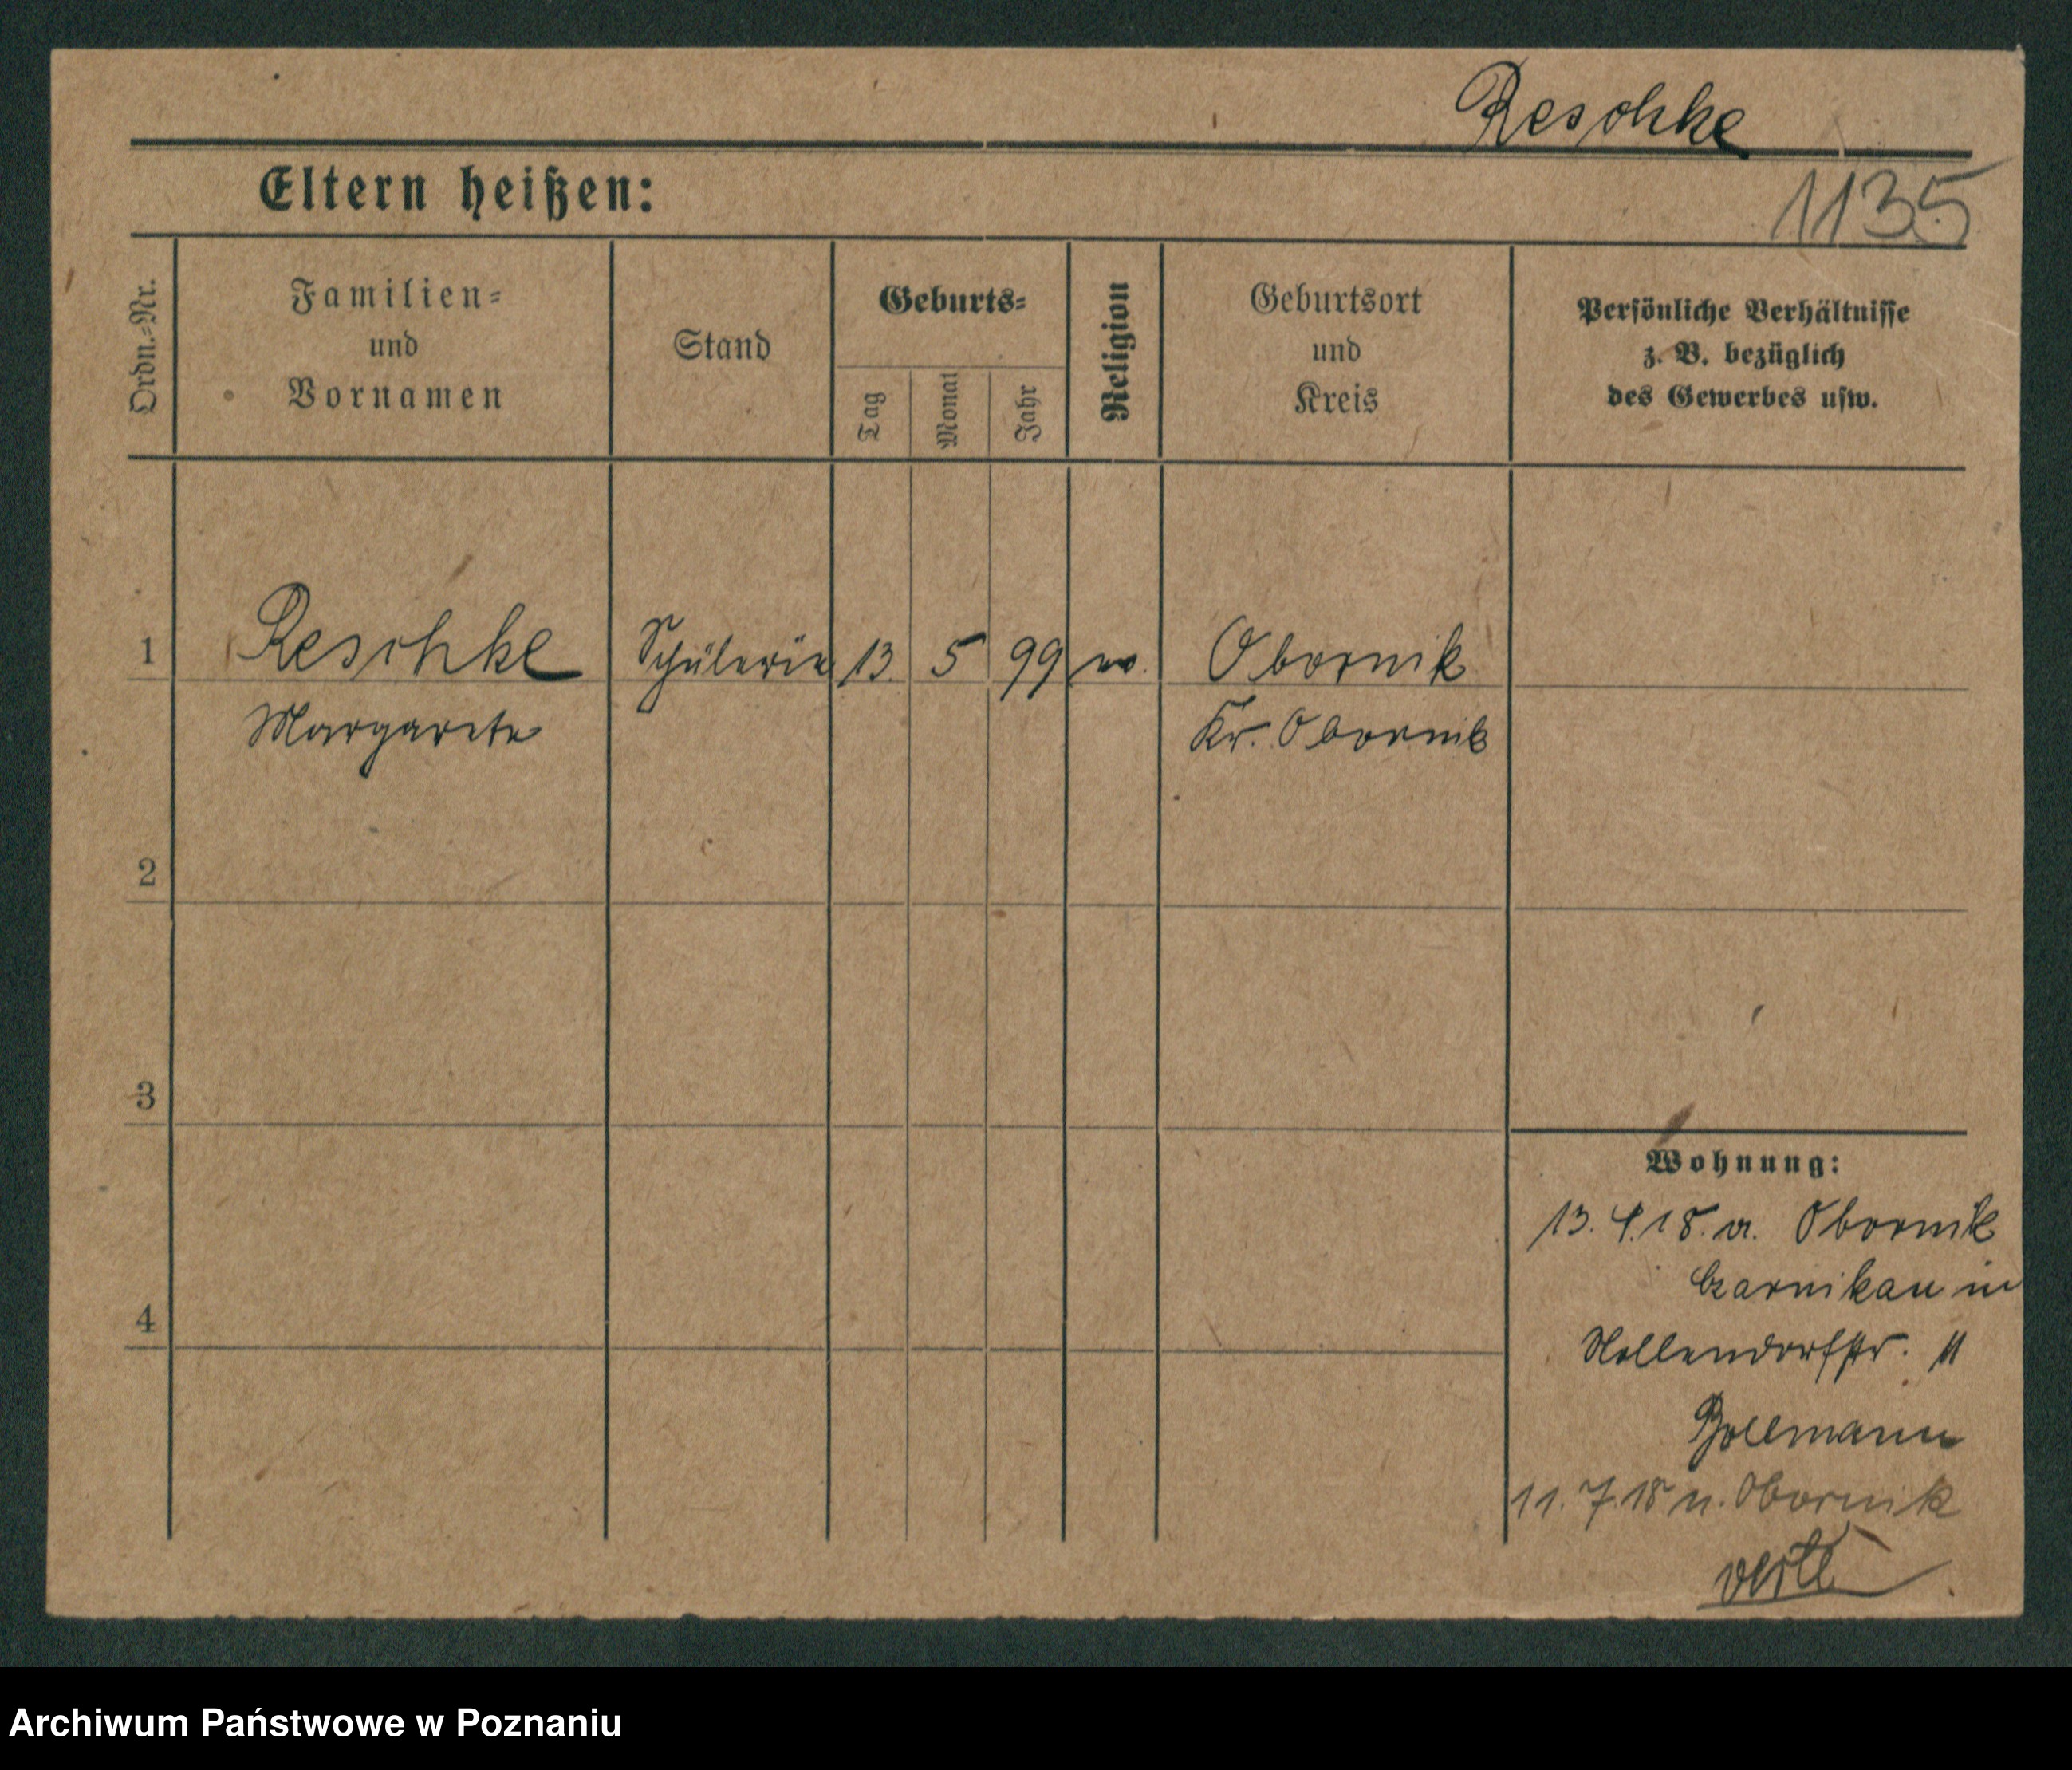 Reschke
Eltern heißen:
1135
Ordn.-Nr.
Familien-
und
Vornamen
Stand
Geburts-
Tag
Monat
Jahr
Religion
Geburtsort
und
Kreis
Persönliche Verhältnisse
z. B. bezüglich
des Gewerbes usw.
1 Reschke Schülerin 13. 5 99 Obornik
Margarete Kr. Obornik
2
3
4
Wohnung:
13. 4. 18. a. Obornik
Czarnikau in
Nollendorfstr. 11
Bollmann
11. 7. 18 n. Obornik
Archiwum Państwowe w Poznaniu